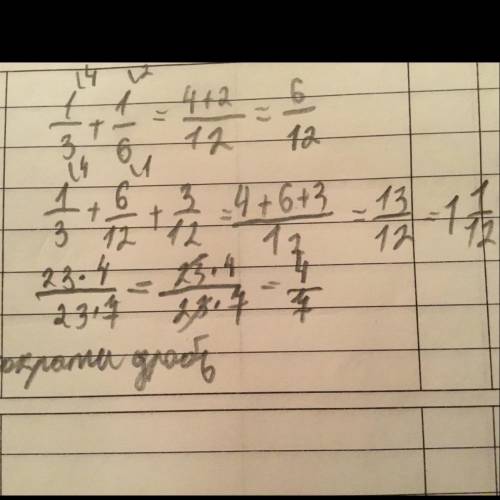 1/3 \4 + 1/6 \2 = 4+2/12 = 6/12
1/3 \4 + 6/12 \1 + 3/12 = 4+6+3/12 = 13/12 = 1 1/12
23·4/23·7 = 23·4/23·7 = 4/7
дробь